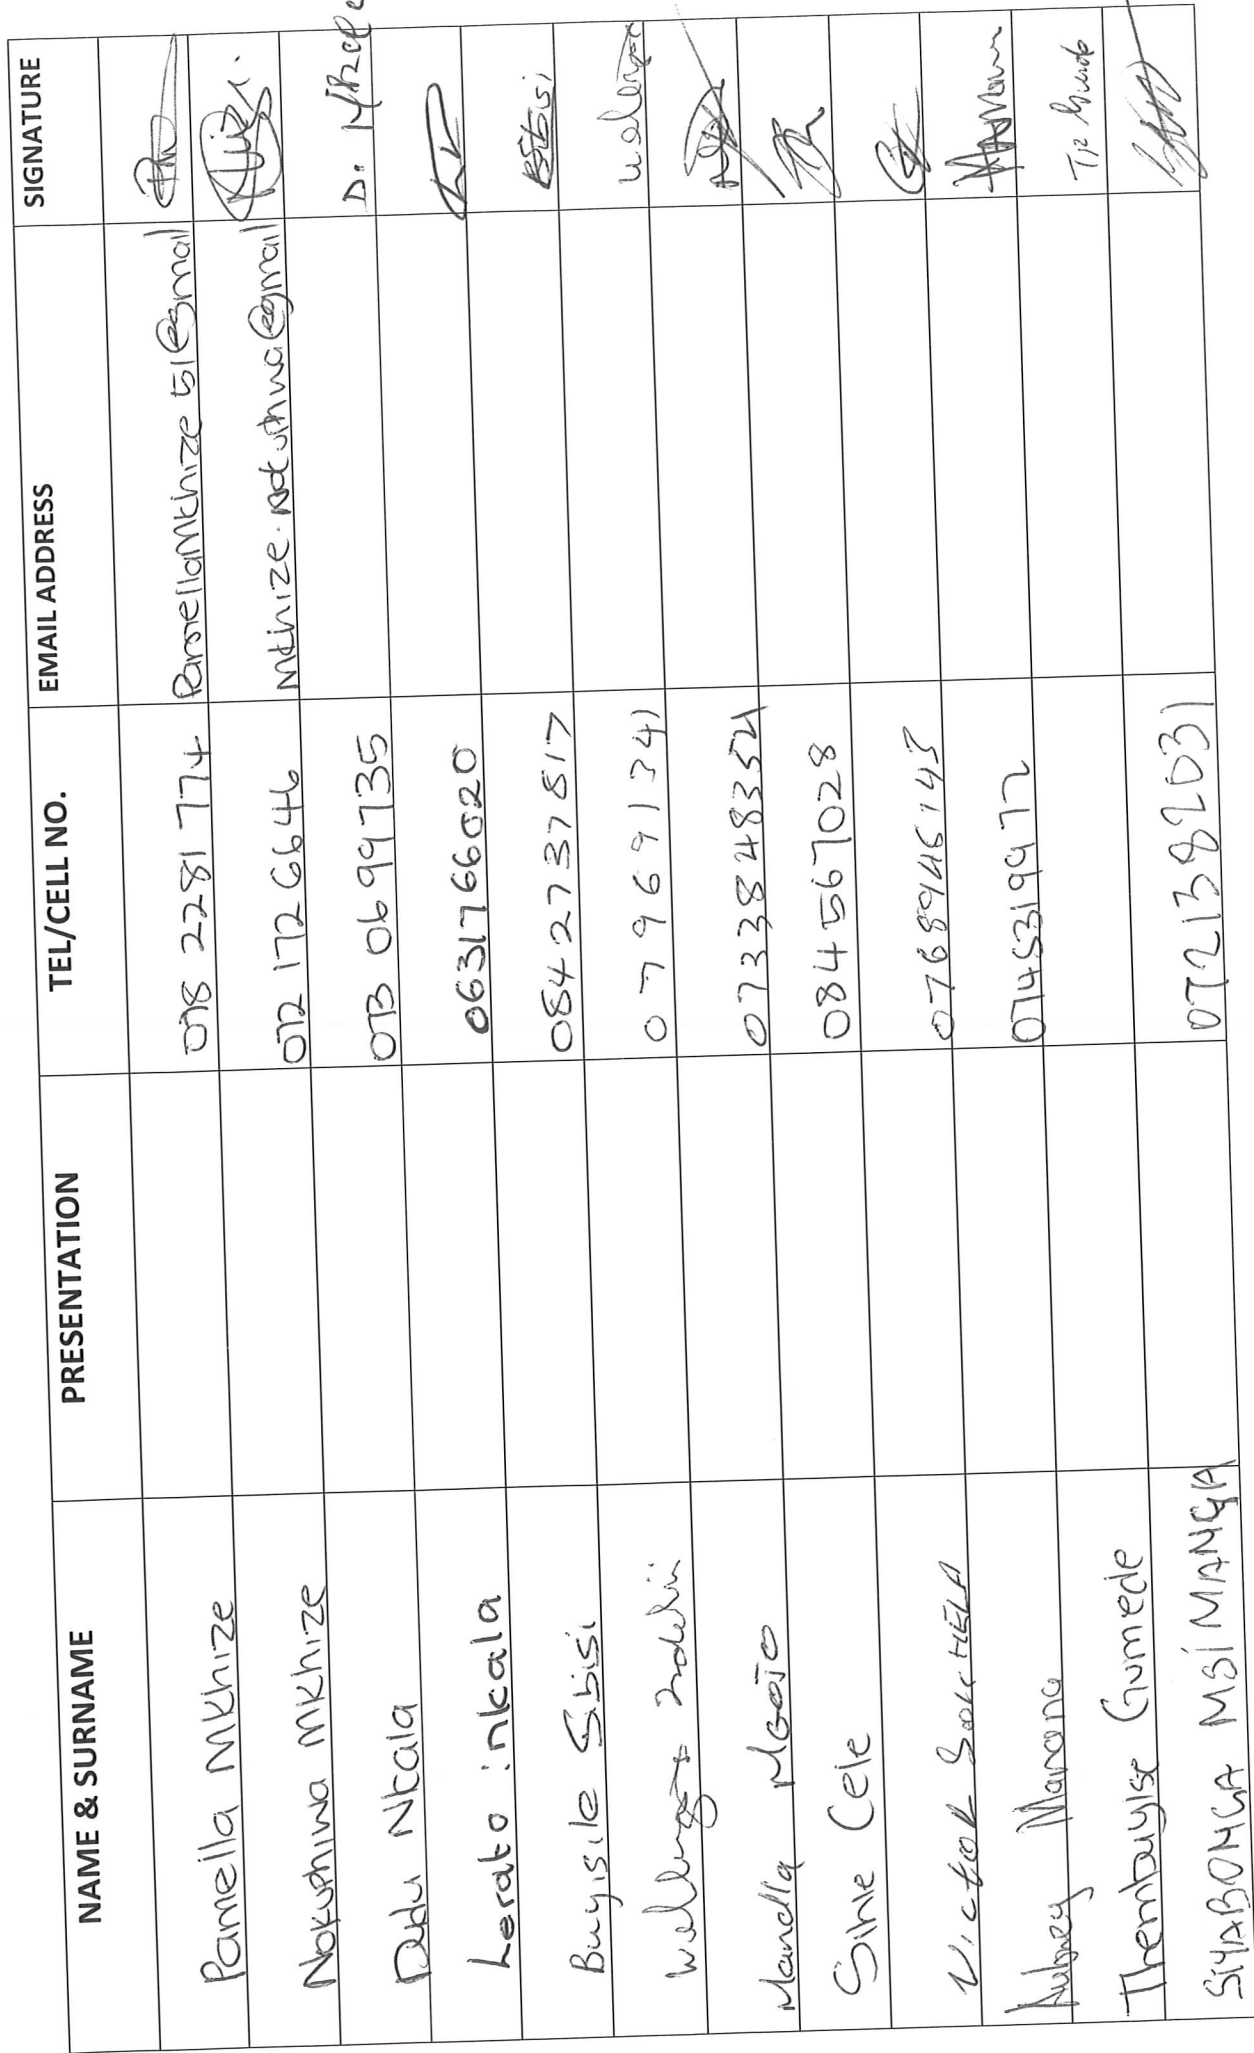 NAME & SURNAME PRESENTATION TEL/CELL NO. EMAIL ADDRESS SIGNATURE
Pamella Mkhize 078 2281 774 PamellaMkhize51@gmail
Nokuthiwa Mkhize 072 172 6646 Mkhize.nokuthiwa@gmail
Dudu Nkala 073 0699735
Lerato inkala 0631766020
Buyisile Sbisi 0842737817 Sibisi
0796911341
Mandla MGoJO 0733848354
Sihle Cele 0845567028
VictoR 0768946143
Aubrey Manana 0745319972
Thembayise Gumede
SIYABONGA MSIMANGA 0721382031